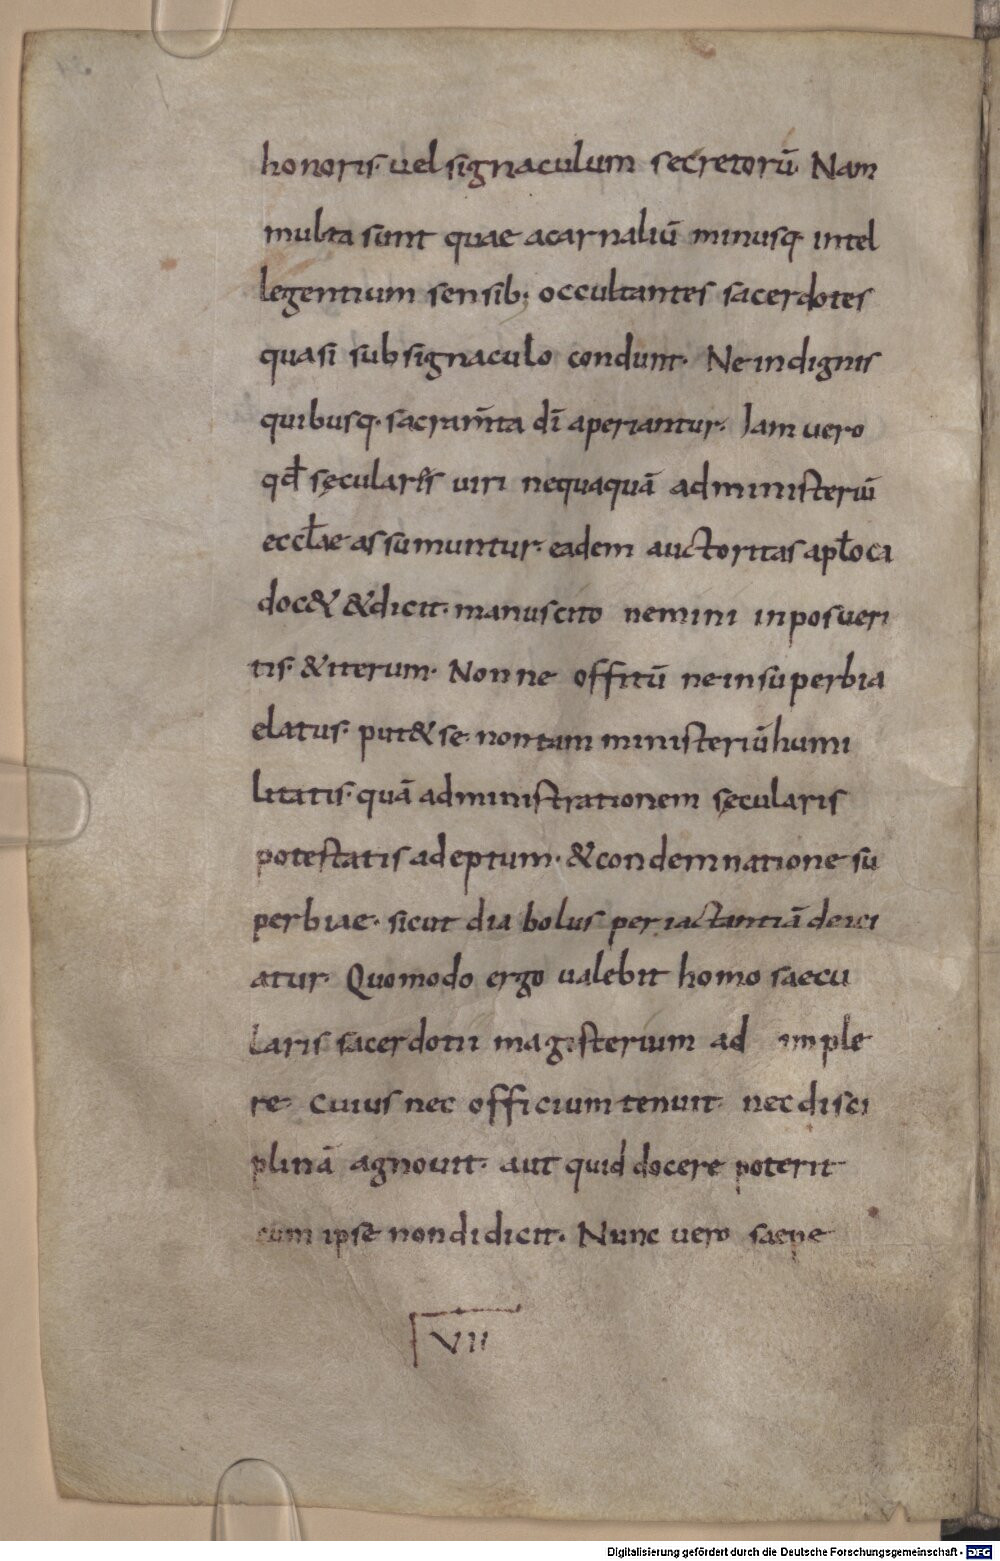 honoris· uel signaculum secretorū· Nam
multa sunt quae acarnaliū minusq· intel
legentium sensib; occultantes sacerdotes
quasi sub signaculo condunt· Ne indignis
quibusq· sacram̄ta dī aperiantur· Iam uero
qđ sęculares uiri nequaquā administeriū
eccłae assumuntur· eadem auctoritas apłoca
doc& &dicit· manus cito nemini inposueri
tis· &iterum· Non ne offitū ne in superbia
elatus· put& se· non tam ministeriū humi
litatis· quā administrationem sęcularis
potestatis adeptum· &condemnatione su
perbiae· sicut dia bolus per iactantiā deici
atur· Quomodo ergo ualebit homo saecu
laris sacerdotii magisterium ad imple
re· Cuius nec officium tenuit· nec disci
plinā agnouit· aut quid docere poterit
cum ipse non didicit· Nunc uero saepe
VII
Digitalisierung gefördert durch die Deutsche Forschungsgemeinschaft - DFG